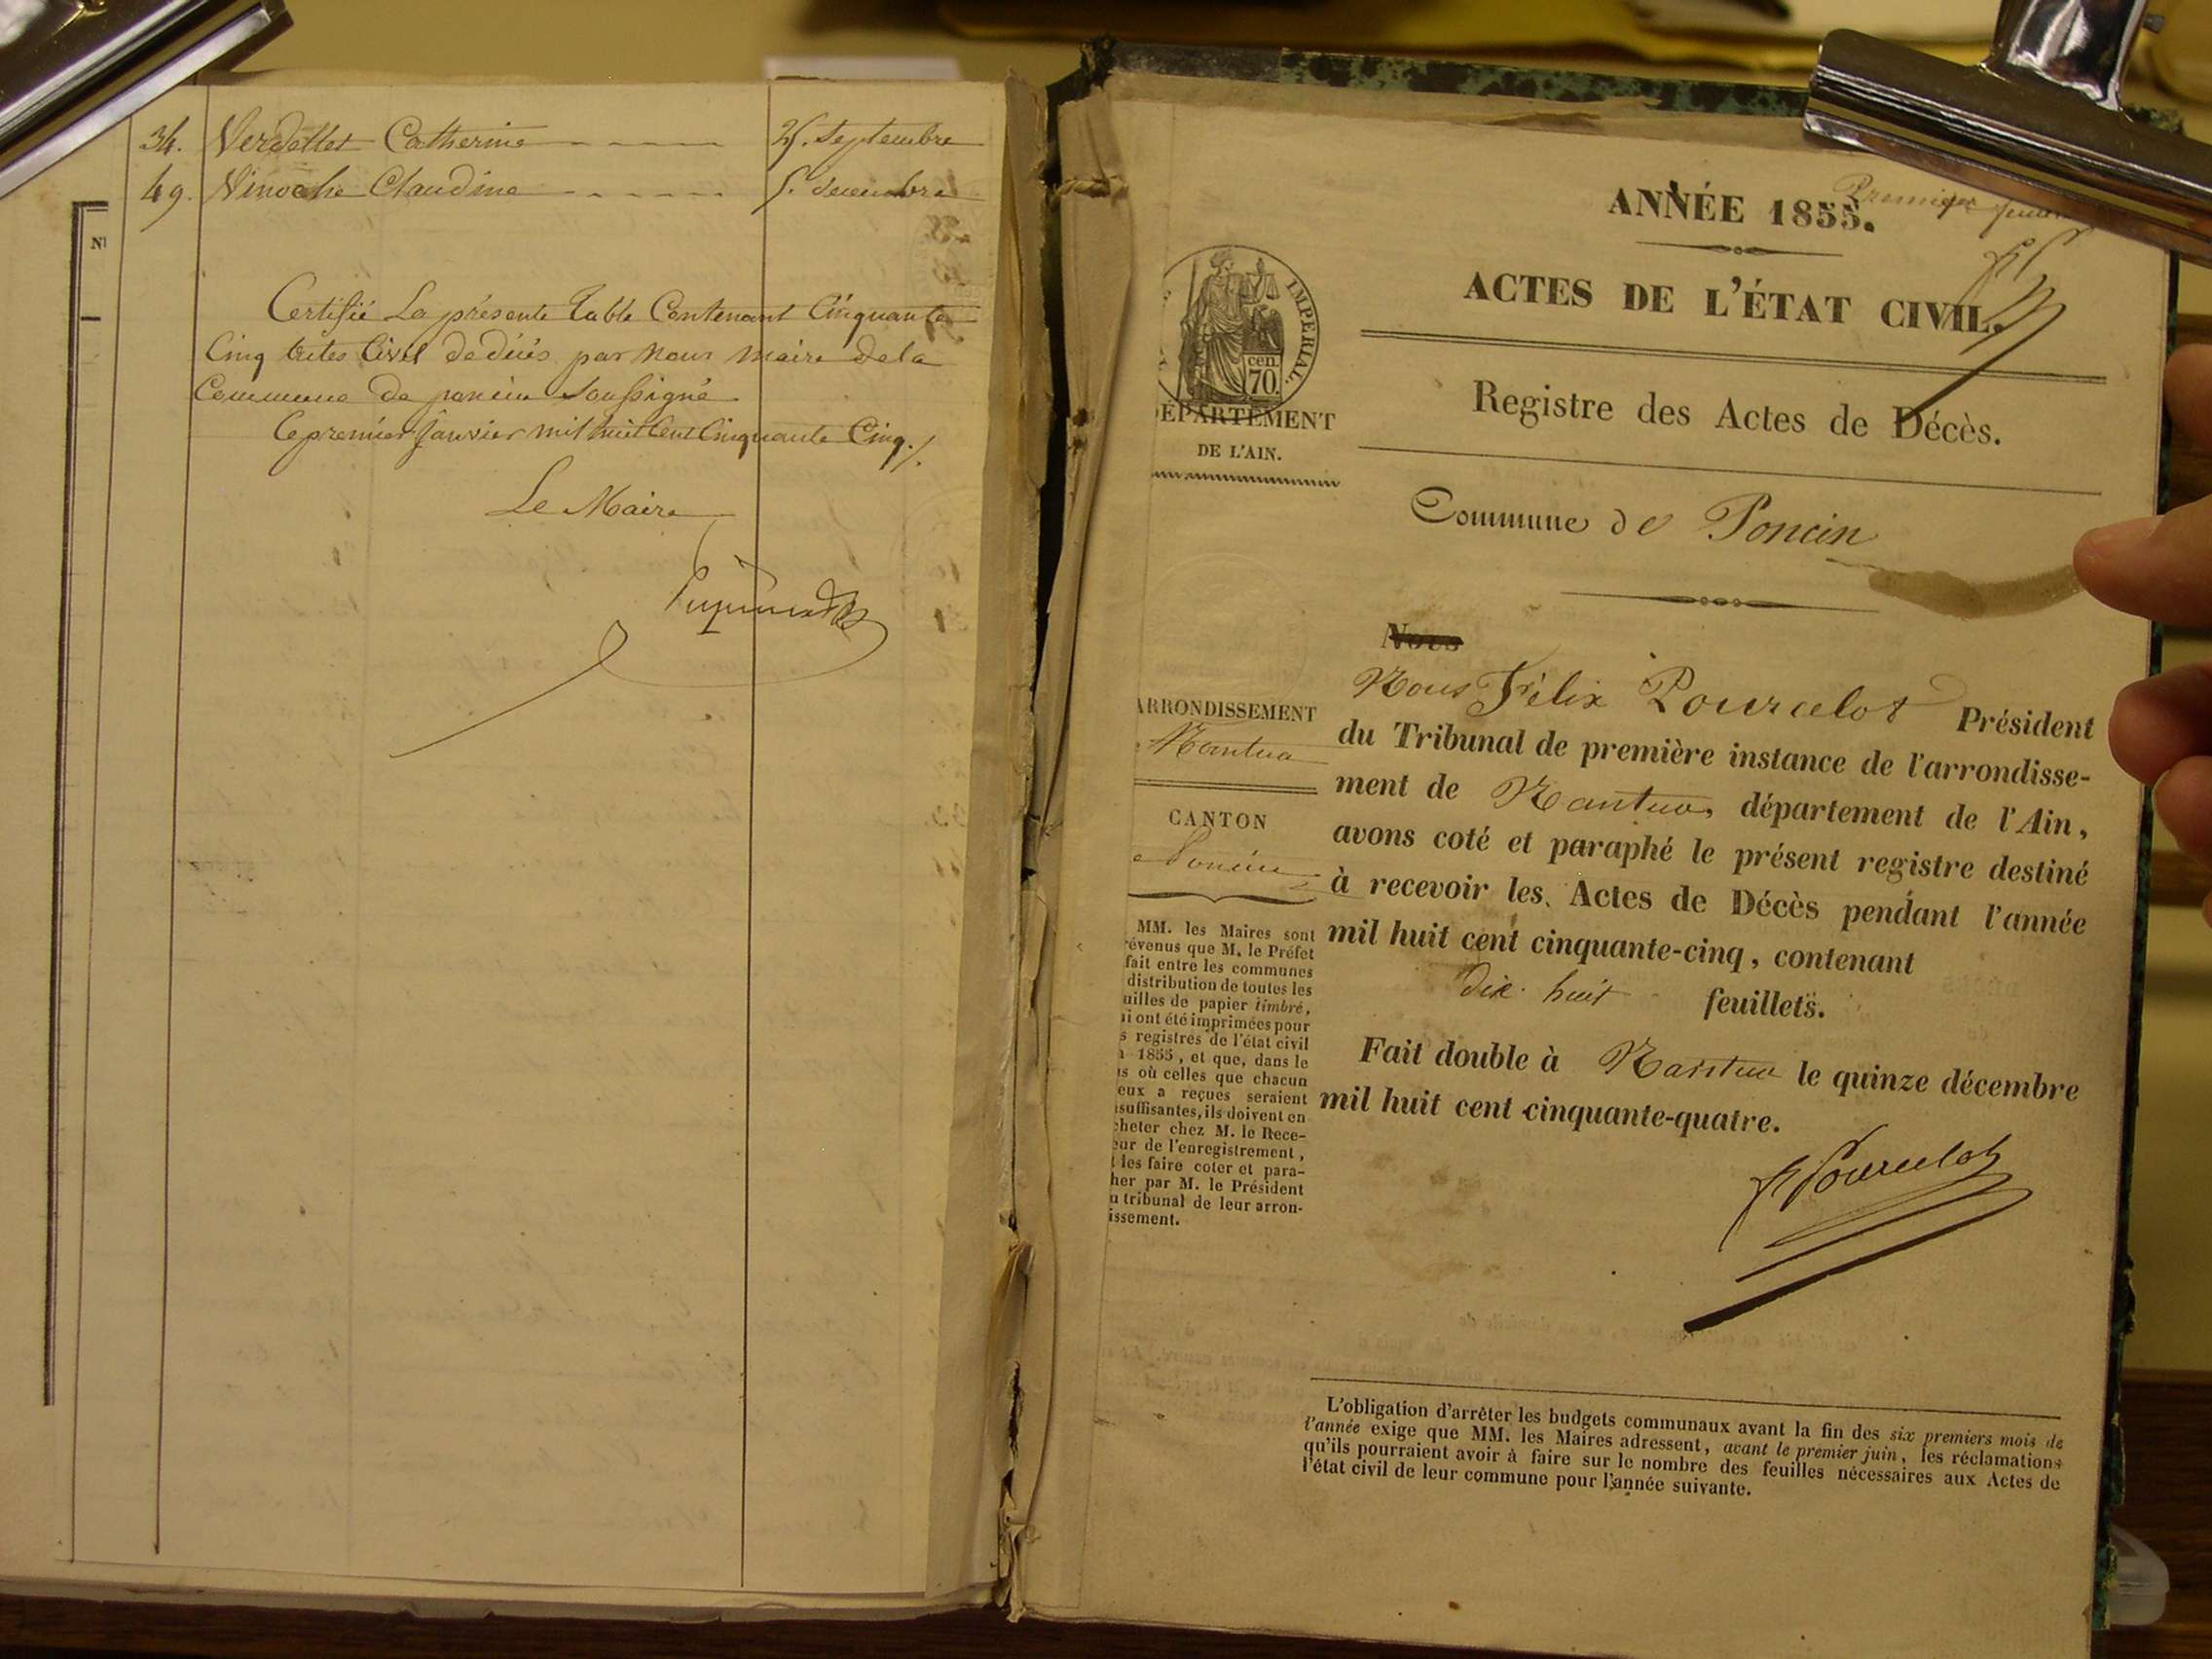 34. Verdellet Catherine 25. Septembre
49. Vinoche Claudine 5. décembre
N
Certifié La présente table Contenant Cinquante
Cinq actes Civil de décès par nous maire de la
Commune de poncin soussigné
Le premier Janvier mil huit Cent Cinquante Cinq./.
Le Maire
Premier feuillet
ANNÉE 1855.
ACTES DE L'ÉTAT CIVIL.
IMPERIAL.
cen.
70.
Registre des Actes de Décès.
DÉPARTEMENT
DE L'AIN.
Commune de Poncin
Nous
Nous Félix Pourcelot Président
du Tribunal de première instance de l'arrondisse-
ment de Nantua, département de l'Ain,
avons coté et paraphé le présent registre destiné
à recevoir les Actes de Décès pendant l'année
mil huit cent cinquante-cinq, contenant
dix huit feuillets.
Fait double à Nantua le quinze décembre
mil huit cent cinquante-quatre.
F Pourcelot
ARRONDISSEMENT
Nantua
CANTON
Poncin
MM. les Maires sont
révenus que M. le Préfet
fait entre les communes
distribution de toutes les
uilles de papier timbré,
ui ont été imprimées pour
s registres de l'état civil
1855, et que, dans le
as où celles que chacun
eux a reçues seraient
nsuffisantes, ils doivent en
cheter chez M. le Rece-
eur de l'enregistrement,
t les faire coter et para-
her par M. le Président
u tribunal de leur arron-
issement.
L'obligation d'arrêter les budgets communaux avant la fin des six premiers mois de
l'année exige que MM. les Maires adressent, avant le premier juin, les réclamations
qu'ils pourraient avoir à faire sur le nombre des feuilles nécessaires aux Actes de
l'état civil de leur commune pour l'année suivante.